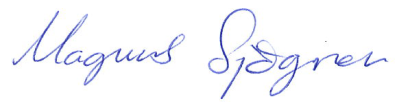 Magnus Sjögren